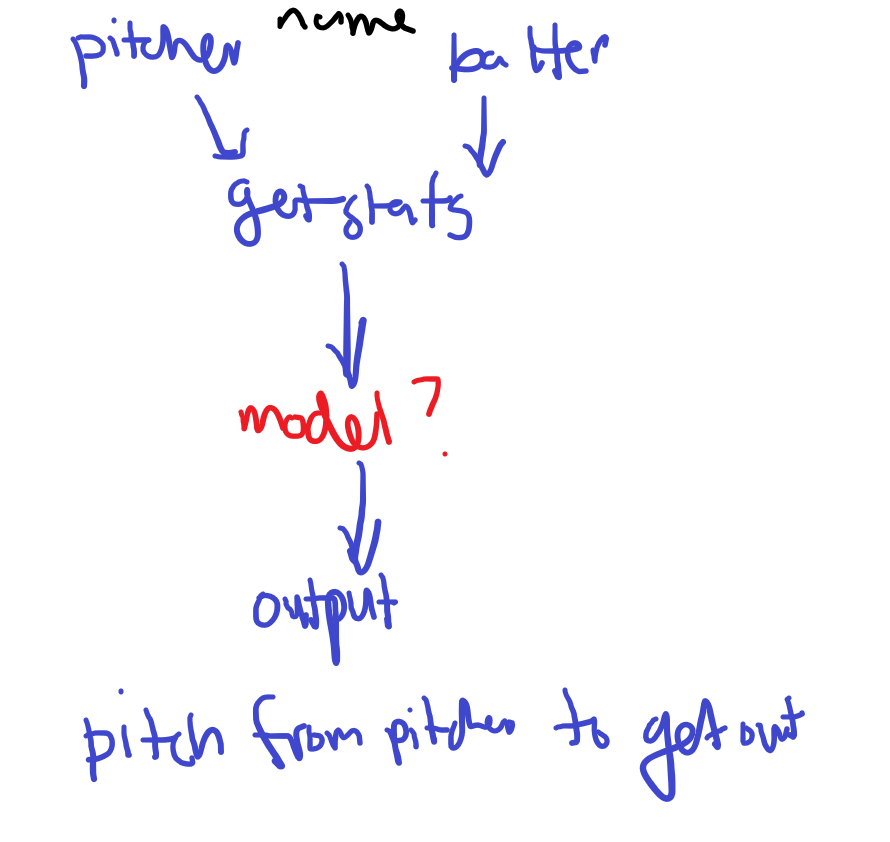 pitcher name batter
get stats
model ?
output
pitch from pitcher to get out